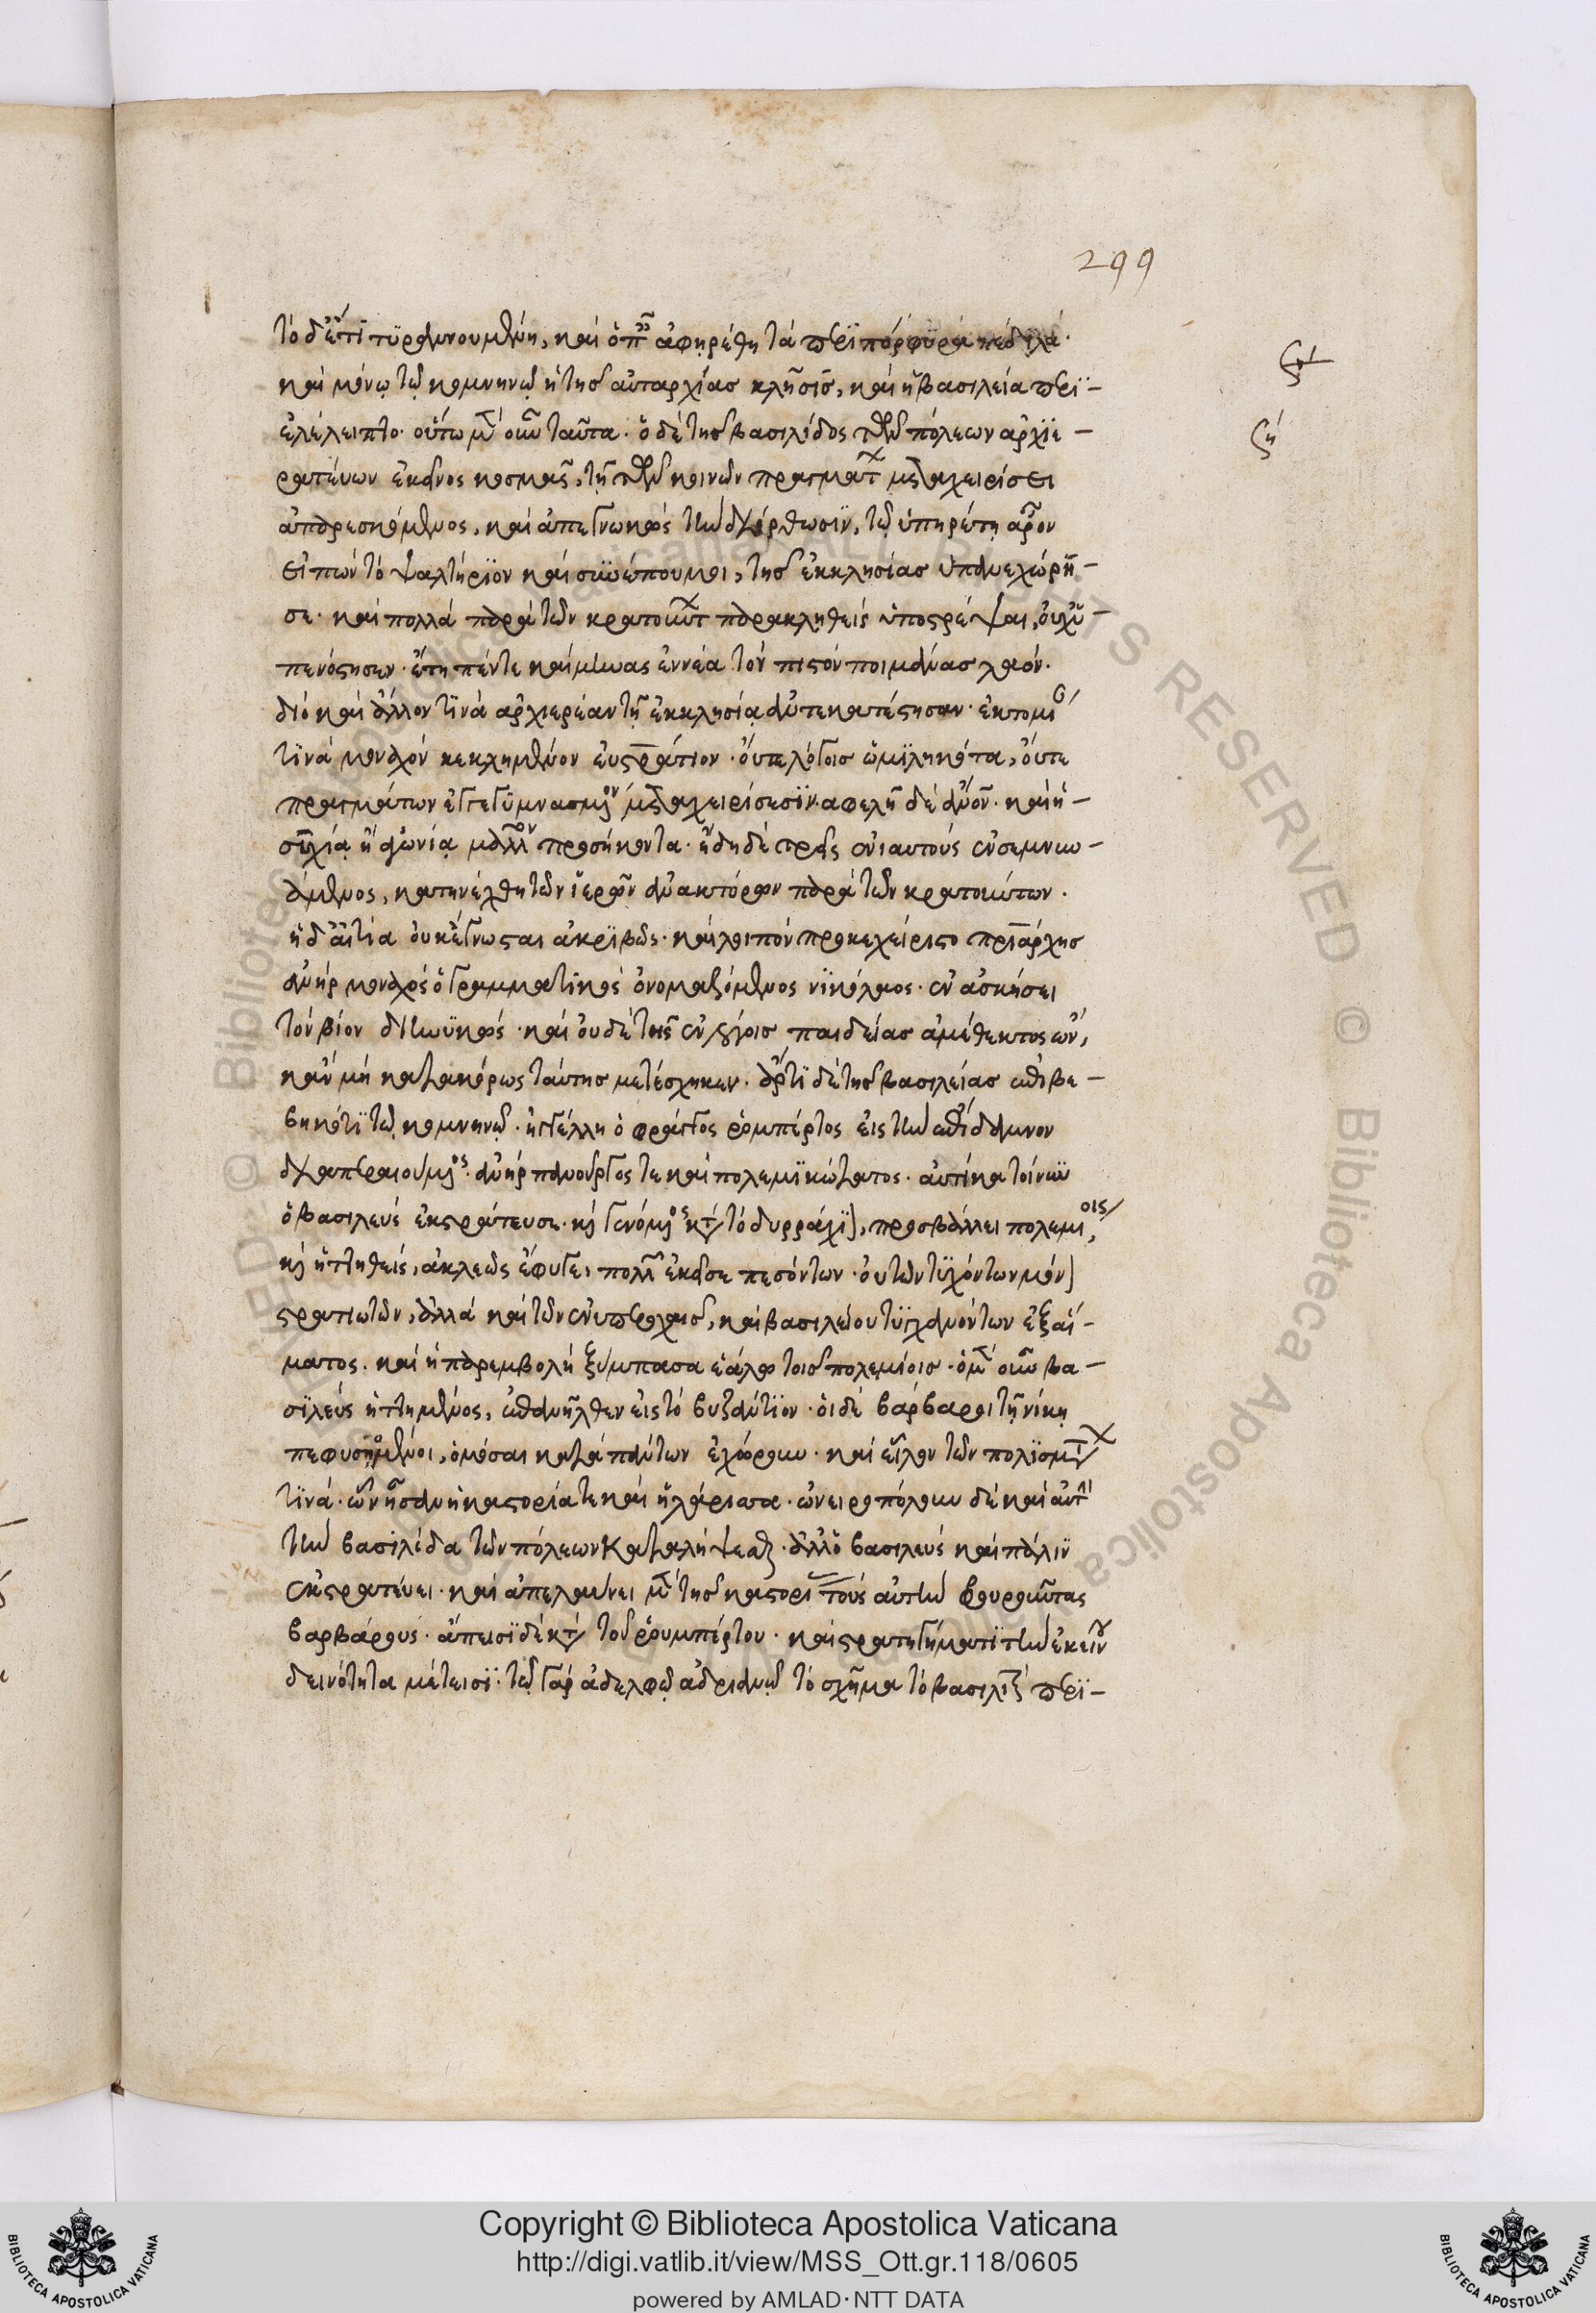 299
τὸ δ' ἔτι τυραννουμένη, καὶ ὁ παῖς ἀφηρέθη τὰ περὶ πόρφυρα πέδιλα·
καὶ μόνῳ τῷ κομνηνῷ ἡ τῆς αὐταρχίας κλῆσις, καὶ ἡ βασιλεία περι-
ελέλειπτο· οὕτω μὲν οὖν ταῦτα· ὁ δὲ τῆς βασιλίδος τῶν πόλεων ἀρχιε-
ρατεύων ἐκεῖνος κοσμᾶς, τῇ τῶν κοινῶν πραγμάτων μεταχειρίσει
ἀπαρεσκόμενος, καὶ ἀπεγνωκὼς τὴν διόρθωσιν, τῷ ὑπηρέτῃ ἆρον
εἰπὼν τὸ ψαλτήριον καὶ συνέπου μοι, τῆς ἐκκλησίας ὑπανεχώρη-
σε· καὶ πολλὰ παρὰ τῶν κρατούντων παρακληθεὶς ὑποστρέψαι, οὐχ ὑ-
πενόστησεν· ἔτη πέντε καὶ μῆνας ἐννέα τὸν πιστὸν ποιμάνας λαόν·
διὸ καὶ ἄλλον τινὰ ἀρχιερέαν τῇ ἐκκλησίᾳ ἀντεκατέστησαν· ἐκτομί
τινὰ μοναχὸν κεκλημένον εὐστράτιον· οὔτε λόγοις ὡμιληκότα, οὔτε
πραγμάτων ἐγγεγυμνασμένον μεταχειρίσεσιν· ἀφελῆ δὲ ἄνδρα· καὶ ἡ-
συχίᾳ ἢ γωνίᾳ μᾶλλον προσήκοντα· ἤδη δὲ τρεῖς ἐνιαυτοὺς ἐνσεμνυ-
άμενος, κατηνέχθη τῶν ἱερῶν ἀνακτόρων παρὰ τῶν κρατούντων·
ἡ δ' αἰτία οὐκ ἔγνωσται ἀκριβῶς· καὶ λοιπὸν προκεχείριστο πατριάρχης
ἀνὴρ μοναχὸς ὁ γραμματικὸς ὀνομαζόμενος νικόλαος· ἐν ἀσκήσει
τὸν βίον διηνυκὼς· καὶ οὐδὲ τῆς ἐν λόγοις παιδείας ἀμέθεκτος ὤν,
κἂν μὴ κατακόρως ταύτης μετέσχηκεν· ἄρτι δὲ τῆς βασιλείας ἐπιβε-
βηκότι τῷ κομνηνῷ· ἠγγέλλη ὁ φράγγος ῥομπέρτος εἰς τὴν ἐπίδαμνον
διαπεραιούμενος· ἀνὴρ πανοῦργός τε καὶ πολεμικώτατος· αὐτίκα τοίνυν
ὁ βασιλεὺς ἐκστράτευσε· καὶ γενόμενος κατὰ τὸ δυρράχιον, προσβάλλει πολεμίοις,
καὶ ἡττηθεὶς, ἀκλεῶς ἔφυγε, πολλῶν ἐκεῖσε πεσόντων· οὐ τῶν τυχόντων μόνον
στρατιωτῶν, ἀλλὰ καὶ τῶν ἐν ὑπεροχαῖς, καὶ βασιλείου τυγχανόντων ἐξ αἵ-
ματος. καὶ ἡ παρεμβολὴ ξύμπασα ἑάλω τοῖς πολεμίοις· ὁ μὲν οὖν βα-
σιλεὺς ἡττημένος, ἐπανῆλθεν εἰς τὸ βυζάντιον· οἱ δὲ βάρβαροι τῇ νίκῃ
πεφυσημένοι, ὁμόσαι κατὰ πάντων ἐχώρουν· καὶ εἷλον τῶν πολισμάτων
τινά· ὧν ἦσαν ἡ καστορία τε καὶ ἡ λάρισσα· ὠνειροπόλουν δὲ καὶ αὐτὴν
τὴν βασιλίδα τῶν πόλεων καταλήψεσθαι· ἀλλ' ὁ βασιλεὺς καὶ πάλιν
ἐκστρατεύει· καὶ ἀπελαύνει μὲν τῆς καστορίας τοὺς αὐτὴν φρουροῦντας
βαρβάρους· ἄπεισι δὲ κατὰ τοῦ ῥουμπέρτου· καὶ στρατηγήματι τὴν ἐκείνου
δεινότητα μέτεισι· τῷ γὰρ ἀδελφῷ ἀδριανῷ τὸ σχῆμα τὸ βασιλικὸν περι-
Copyright © Biblioteca Apostolica Vaticana
http://digi.vatlib.it/view/MSS_Ott.gr.118/0605
powered by AMLAD·NTT DATA